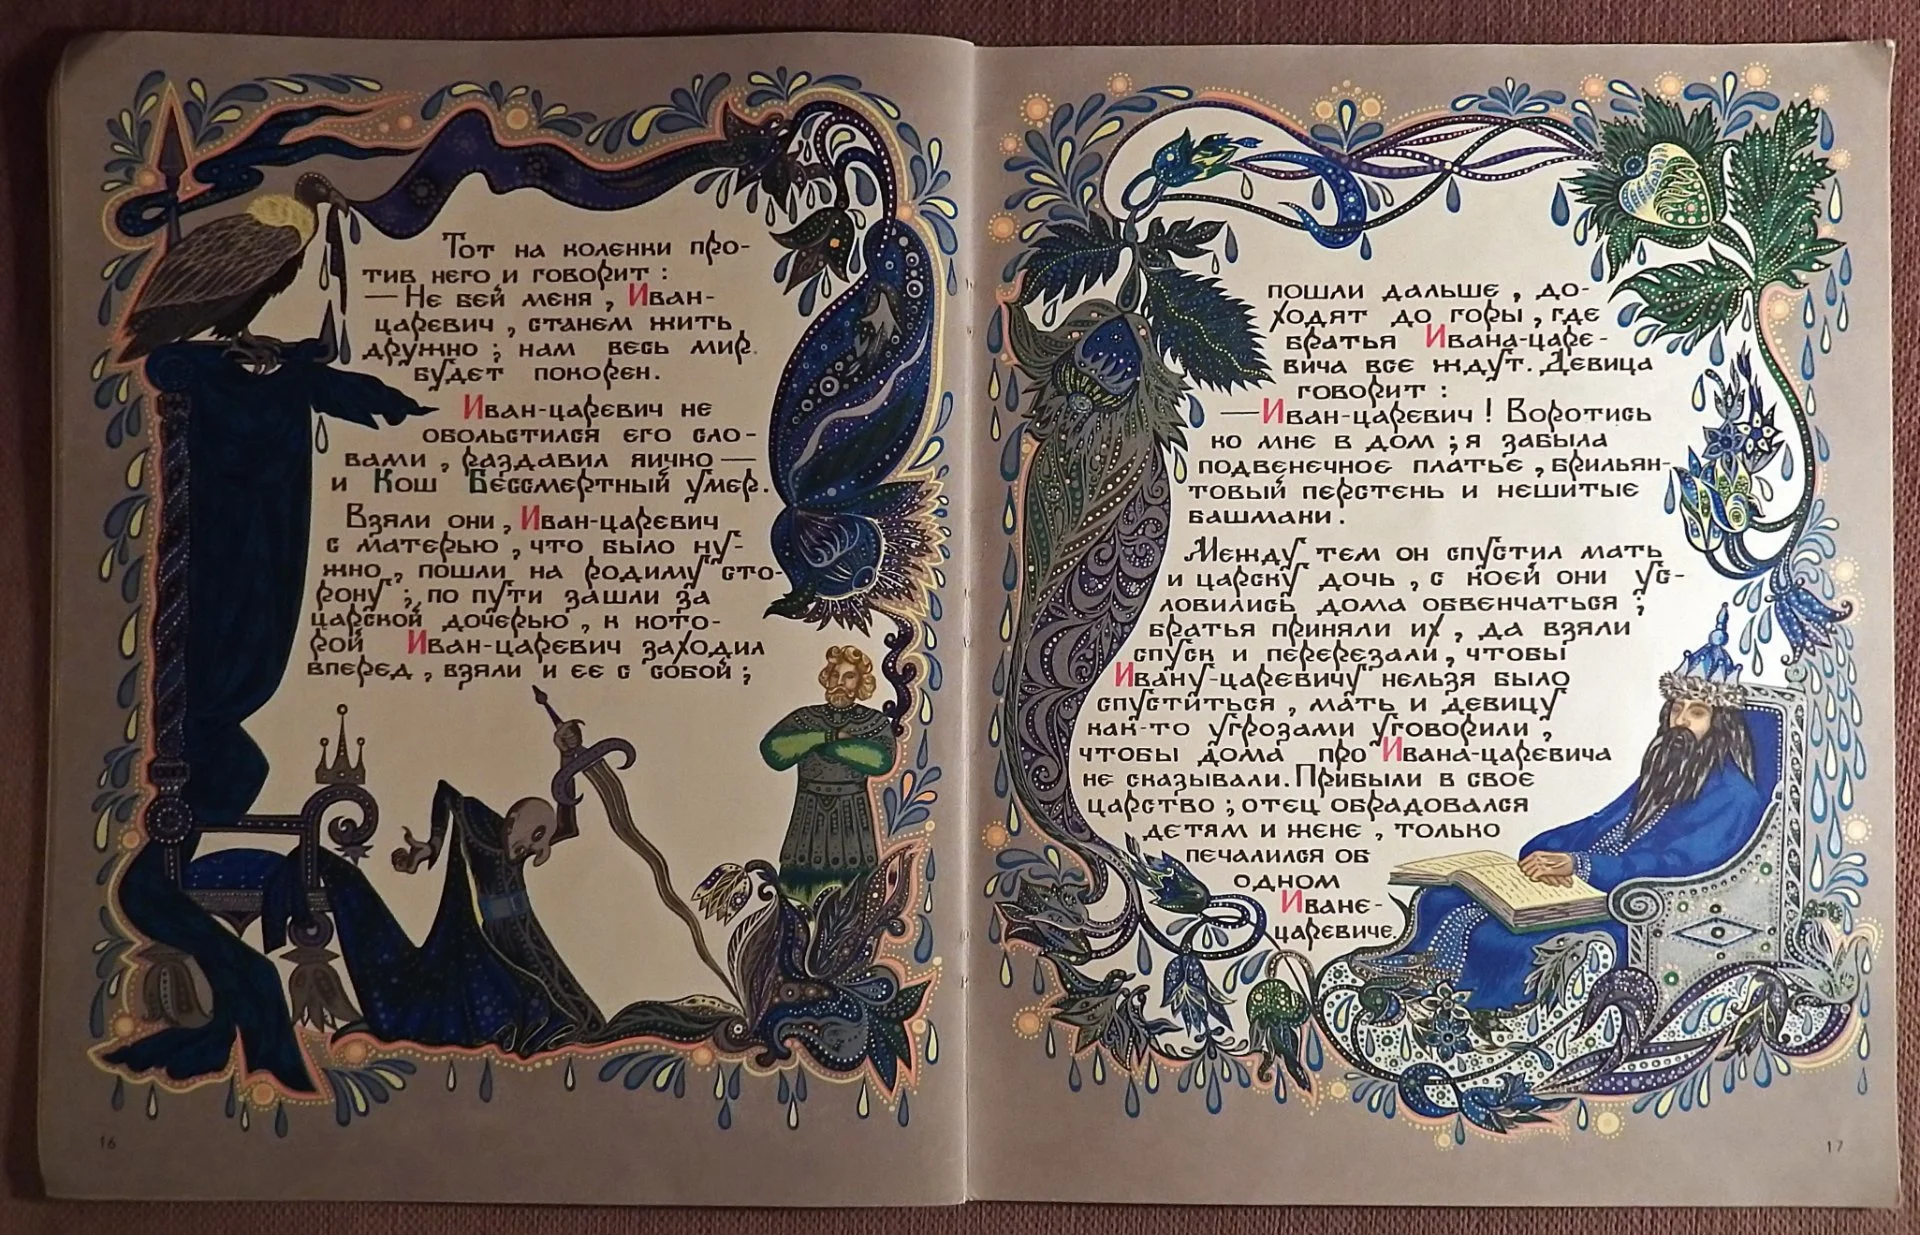 Тот на коленки про-
тив него и говорит:
— Не бей меня, Иван-
царевич, станем жить
дружно; нам весь мир
будет покорен.
Иван-царевич не
обольстился его сло-
вами, раздавил яичко —
и Кош Бессмертный умер.
Взяли они, Иван-царевич
с матерью, что было ну-
жно, пошли на родиму сто-
рону; по пути зашли за
царской дочерью, к кото-
рой Иван-царевич заходил
вперед, взяли и ее с собой;
16
пошли дальше, до-
ходят до горы, где
братья Ивана-царе-
вича все ждут. Девица
говорит:
—Иван-царевич! Воротись
ко мне в дом; я забыла
подвенечное платье, брильян-
товый перстень и нешитые
башмаки.
Между тем он спустил мать
и царску дочь, с коей они ус-
ловились дома обвенчаться;
братья приняли их, да взяли
спуск и перерезали, чтобы
Ивану-царевичу нельзя было
спуститься, мать и девицу
как-то угрозами уговорили,
чтобы дома про Ивана-царевича
не сказывали. Прибыли в свое
царство; отец обрадовался
детям и жене, только
печалился об
одном
Иване-
царевиче.
17